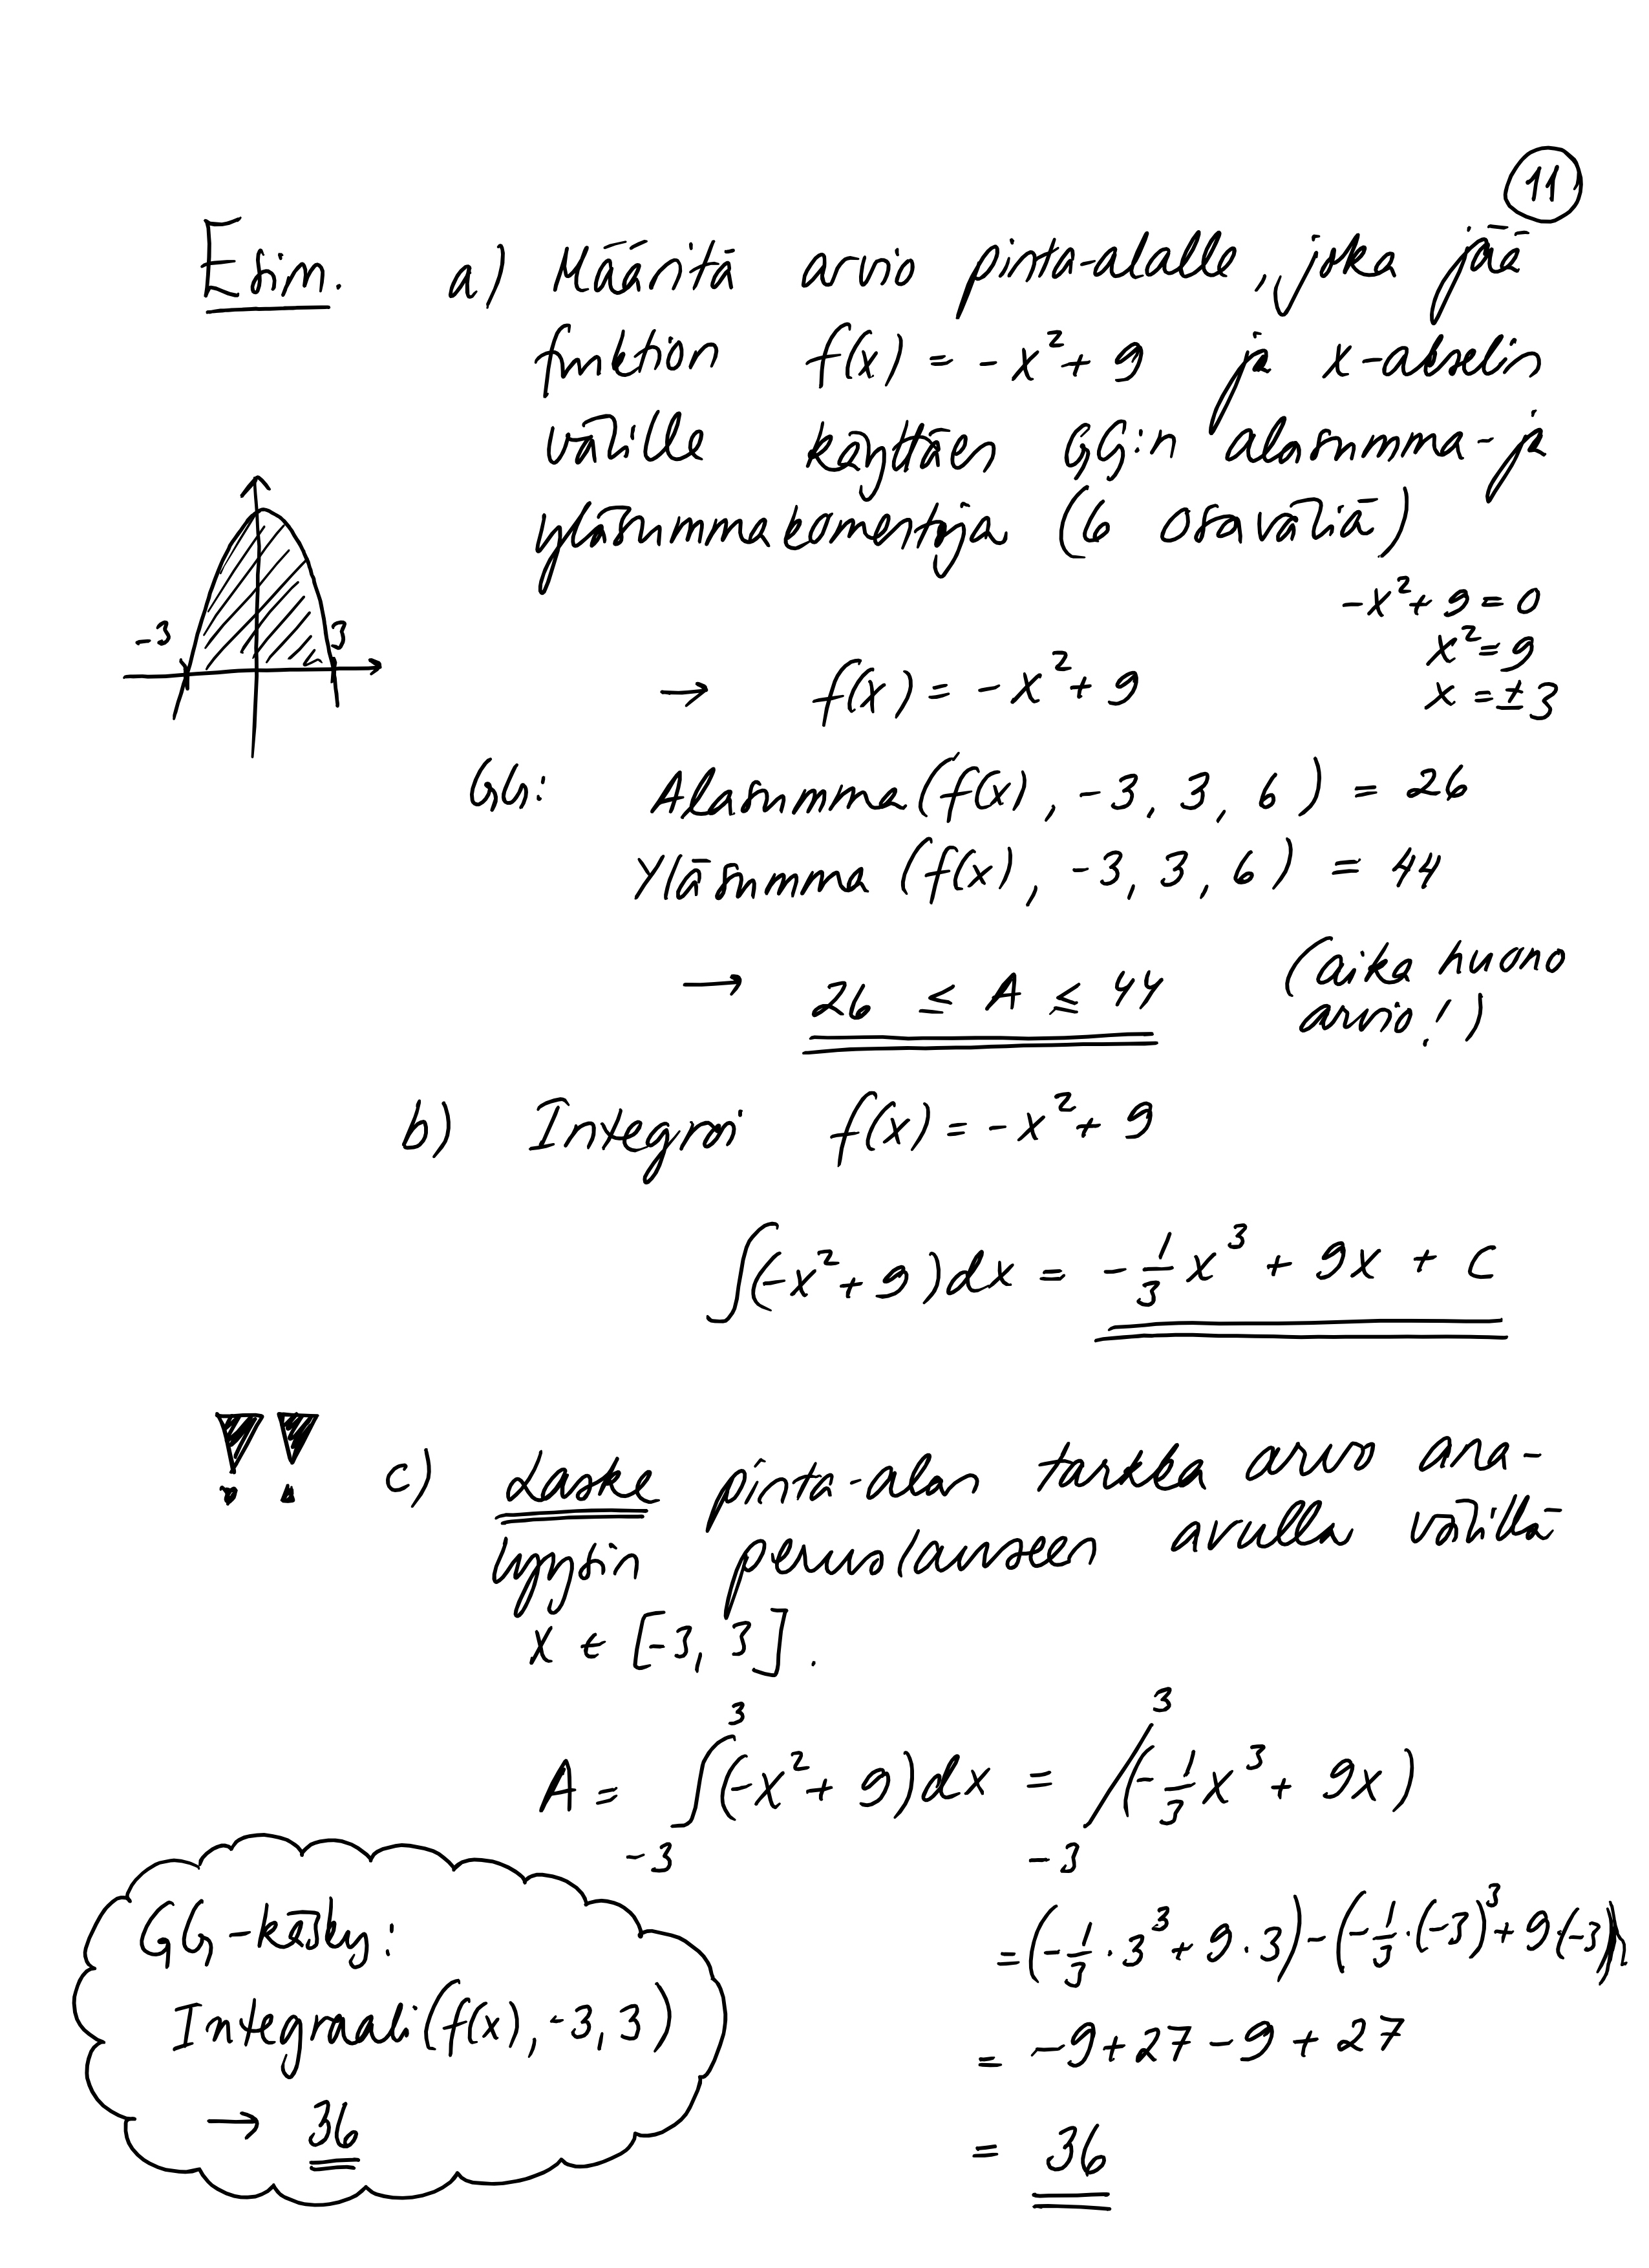 11
Esim. a) Määritä arvio pinta-alalle, joka jää
funktion f(x) = -x² + 9 ja x-akselin
välille käyttäen GG:n alasumma- ja
yläsummakomentoja (6 osaväliä)
-x² + 9 = 0
x² = 9
x = ± 3
-3 3
→ f(x) = -x² + 9
GG: Alasumma(f(x), -3, 3, 6) = 26
Yläsumma (f(x), -3, 3, 6) = 44
→ 26 ≤ A ≤ 44 (aika huono
arvio!)
b) Integroi f(x) = -x² + 9
∫(-x² + 9)dx = -1/3 x³ + 9x + C
!! c) Laske pinta-alan tarkka arvo ana-
lyysin peruslauseen avulla välillä
x ∈ [-3, 3].
A = ∫₋₃³ (-x² + 9)dx = /₋₃³ (-1/3 x³ + 9x)
= (-1/3 · 3³ + 9 · 3) - (-1/3 · (-3)³ + 9 · (-3))
= -9 + 27 - 9 + 27
= 36
GG-käsky:
Integraali(f(x), -3, 3)
→ 36